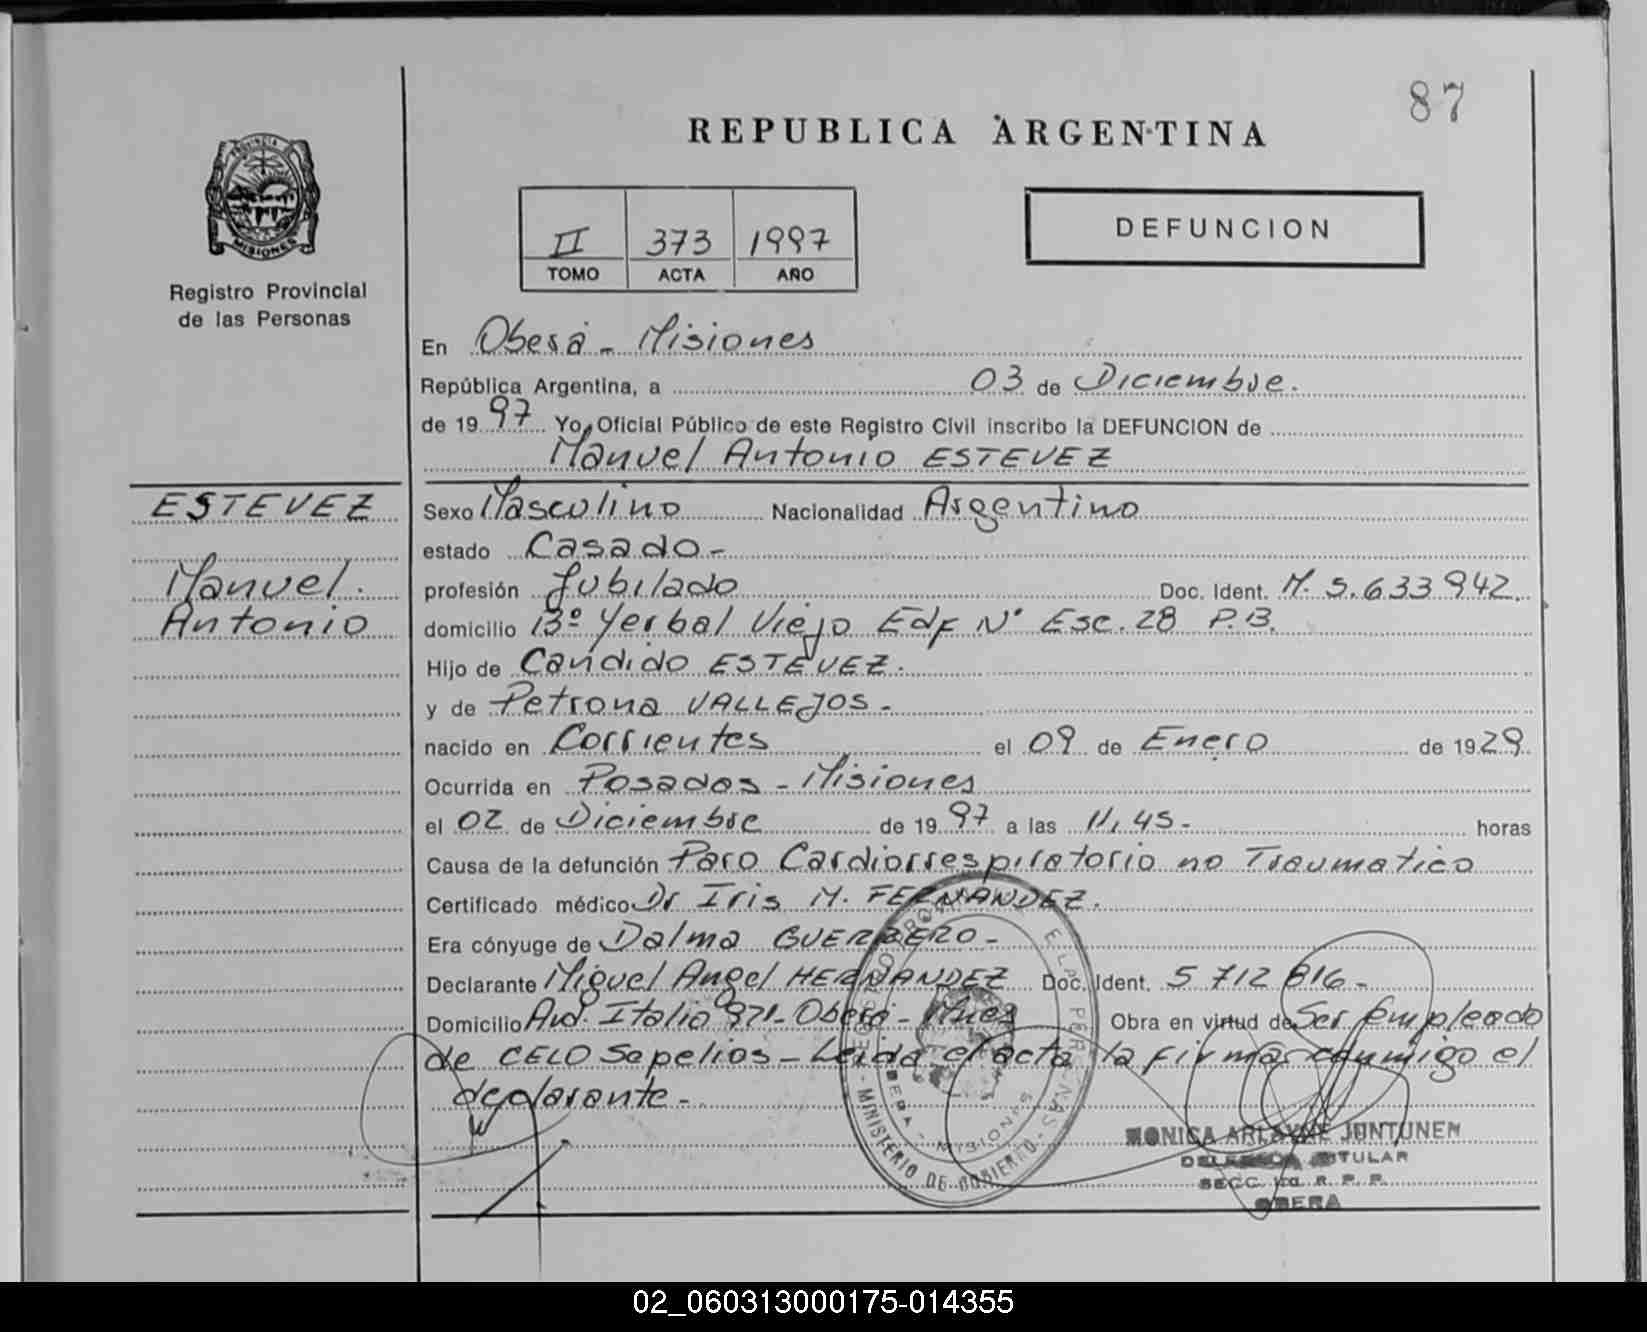 87
REPUBLICA ARGENTINA
PROVINCIA
MISIONES
Registro Provincial
de las Personas
II 373 1997
TOMO ACTA AÑO
DEFUNCION
En Oberá - Misiones
República Argentina, a 03 de Diciembre.
de 19 97 Yo, Oficial Público de este Registro Civil inscribo la DEFUNCION de
Manuel Antonio ESTEVEZ
ESTEVEZ
Manuel.
Antonio
Sexo Masculino Nacionalidad Argentino
estado Casado -
profesión Jubilado Doc. Ident. M. 5.633942.
domicilio Bº Yerbal Viejo Edf Nº Esc. 28 P.B.
Hijo de Candido ESTEVEZ.
y de Petrona VALLEJOS -
nacido en Corrientes el 09 de Enero de 1929.
Ocurrida en Posadas - Misiones
el 02 de Diciembre de 19 97 a las 11,45 - horas
Causa de la defunción Paro Cardiorrespiratorio no Traumatico
Certificado médico Dr Iris M. FERNANDEZ.
Era cónyuge de Dalma GUERRERO -
Declarante Miguel Angel HERNANDEZ Doc. Ident. 5 712 816 -
Domicilio Avd. Italia 971 - Oberá - Mnes Obra en virtud de Ser Empleado
de CELO Sepelios - Leida el acta la firma conmigo el
declarante -
MINISTERIO DE GOBIERNO
OBERA - MISIONES
MONICA JUNTUNEN
TITULAR
SECC. R. P. P.
OBERA
02_060313000175-014355